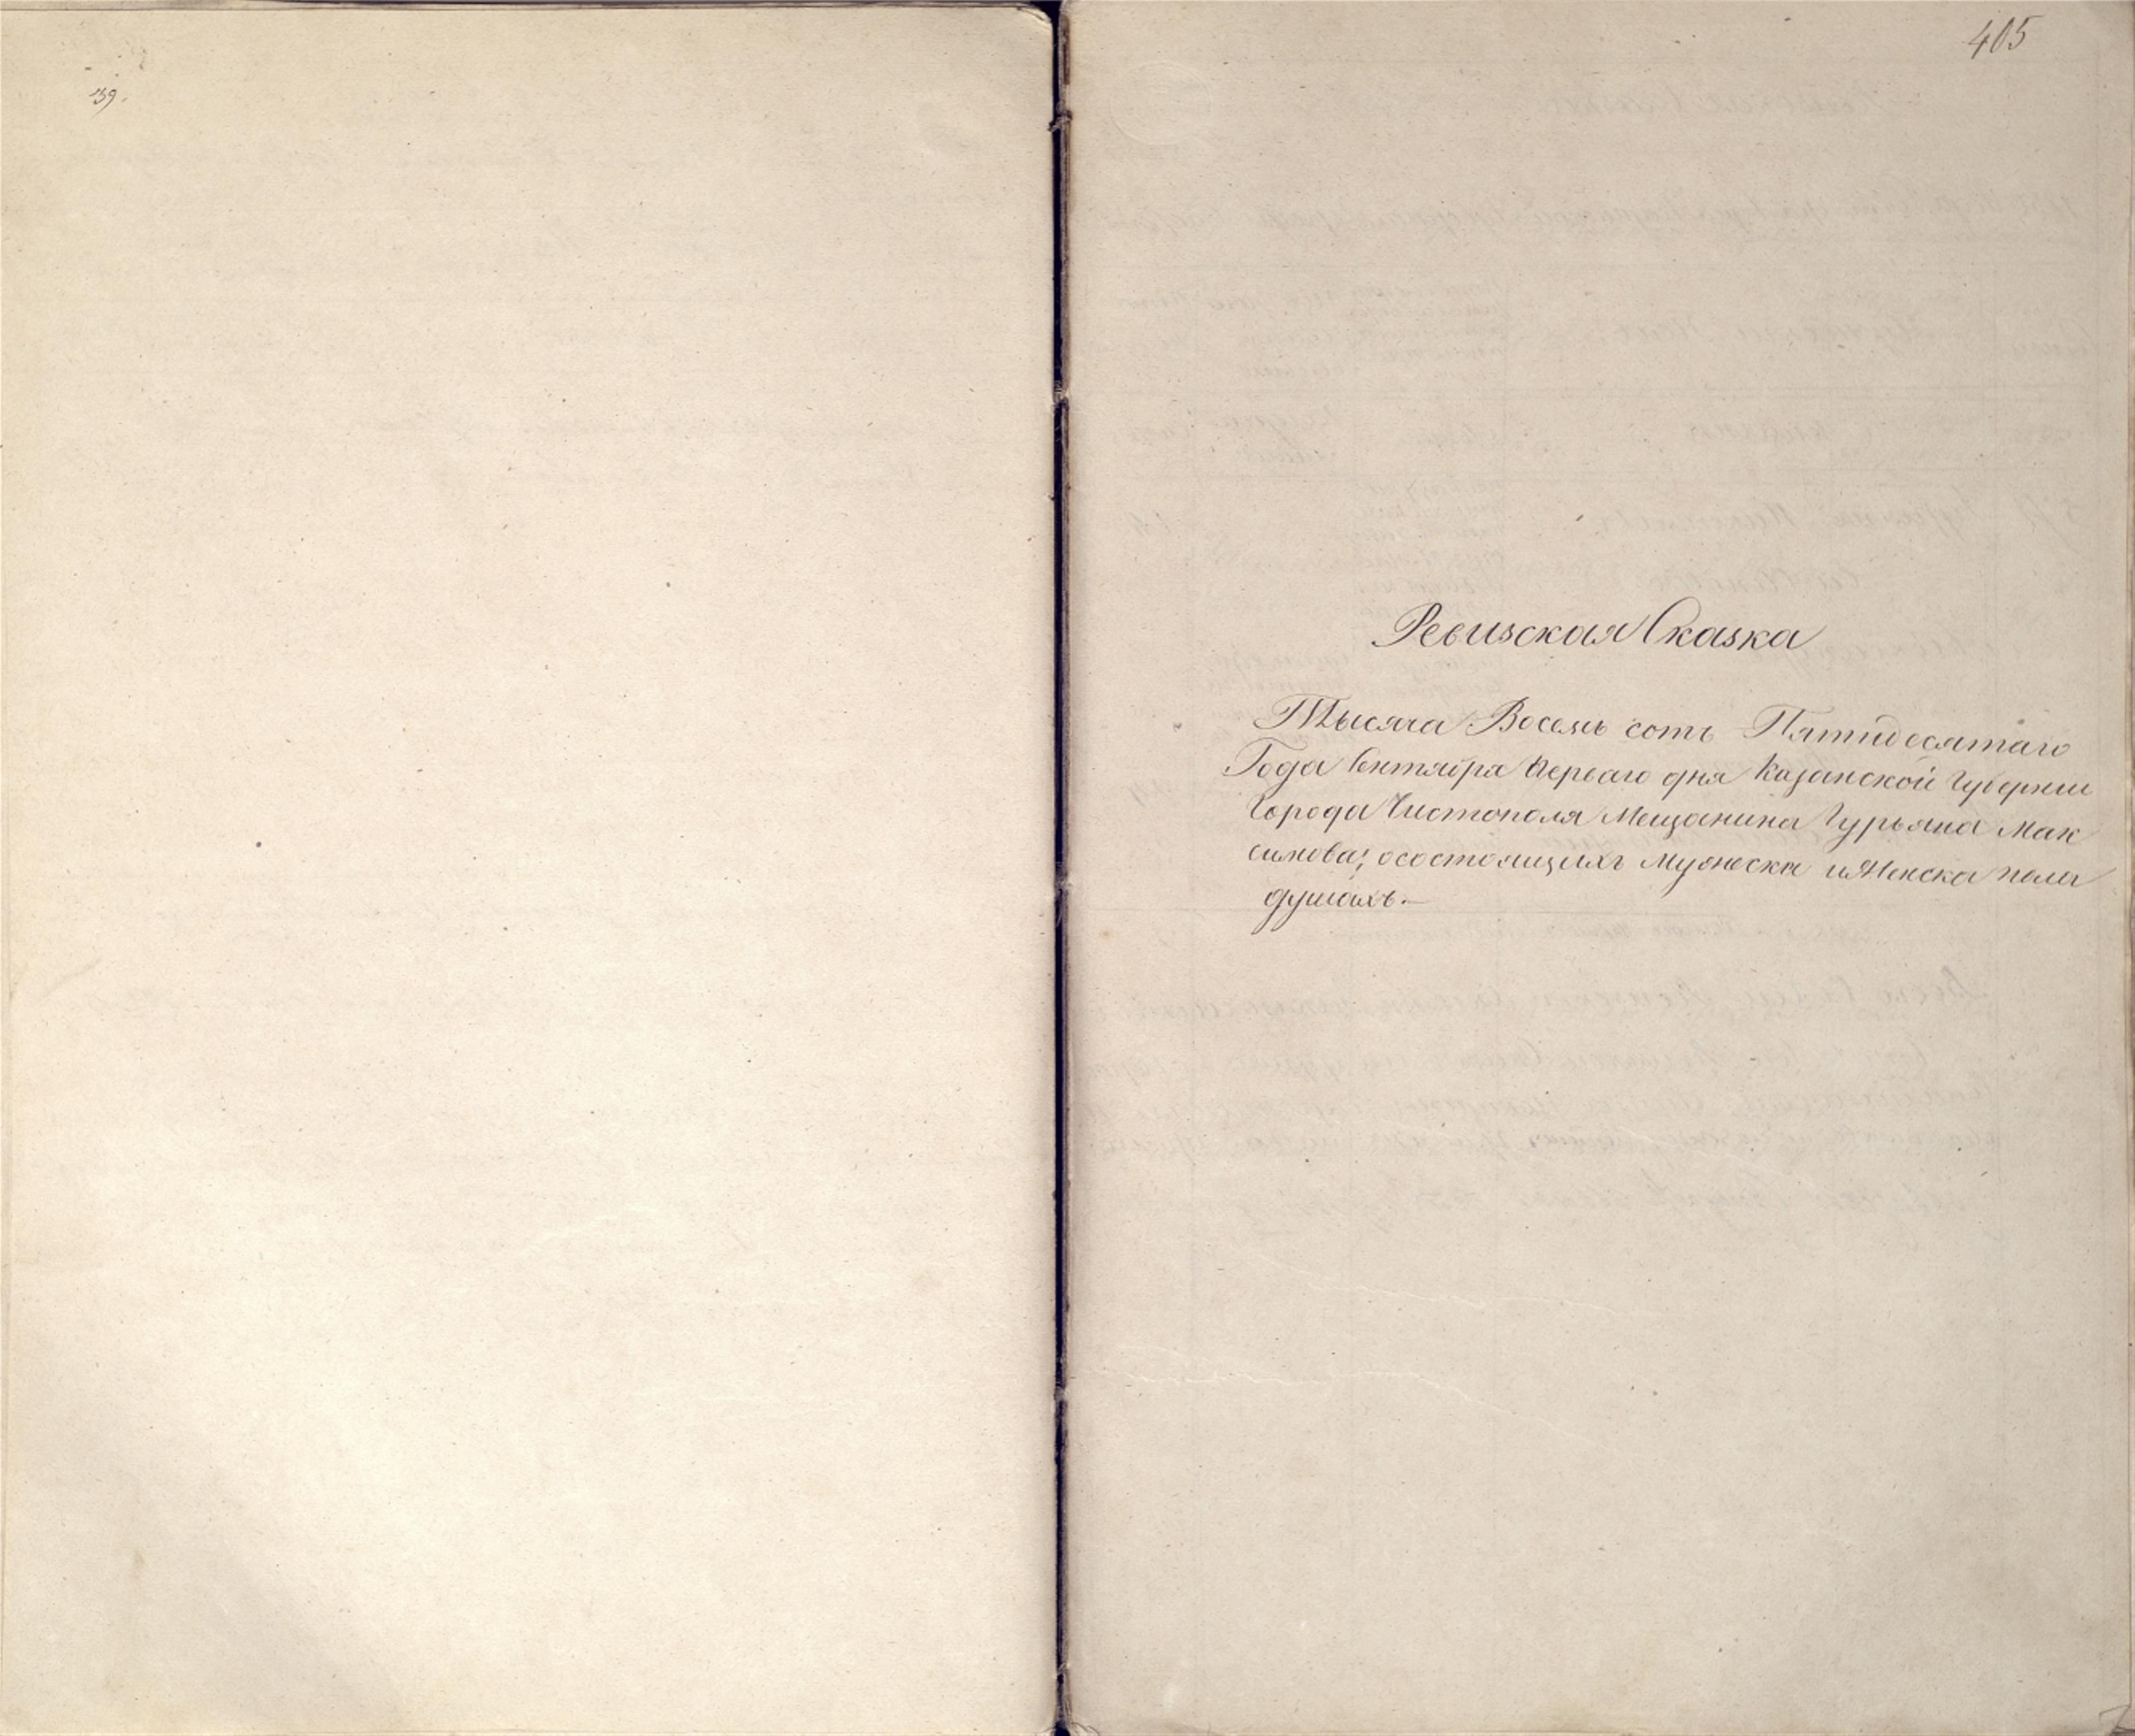 139.
405
Ревизская Сказка
Тысяча Восемь сотъ Пятидесятаго
Года Сентября Перваго дня Казанской Губернии
Города Чистополя Мещанина Гурьяна Мак
симова; осостоящихъ Мужеска иЖенска пола
душахъ.—